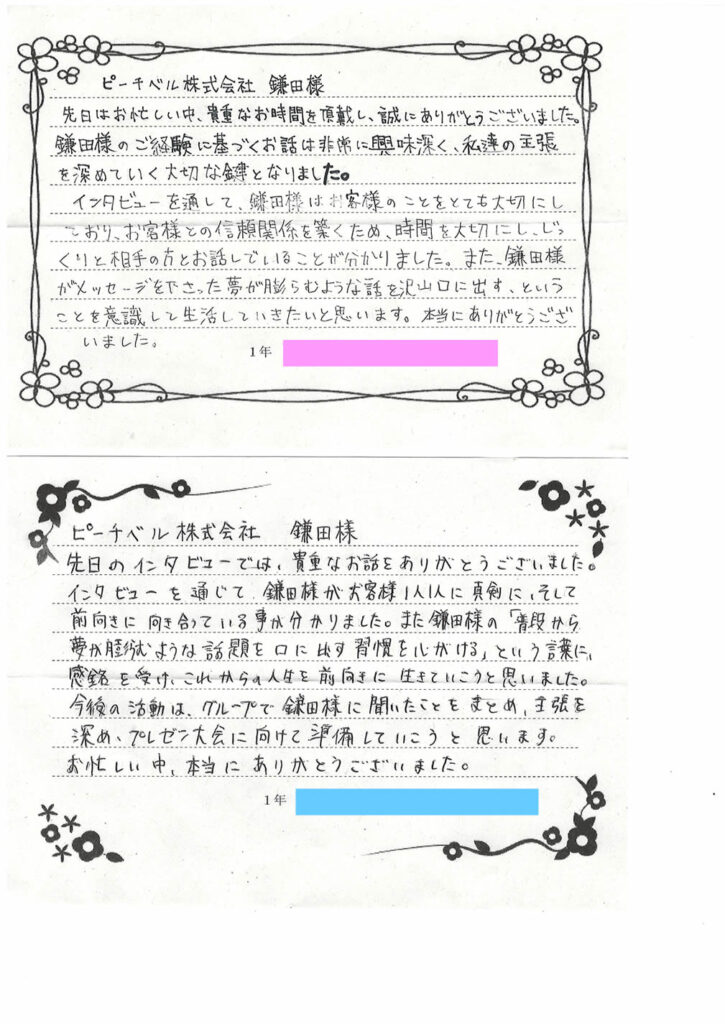 ピーチベル株式会社 鎌田様
先日はお忙しい中、貴重なお時間を頂戴し、誠にありがとうございました。
鎌田様のご経験に基づくお話は非常に興味深く、私達の主張
を深めていく大切な鍵となりました。
インタビューを通して、鎌田様はお客様のことをとても大切にし
ており、お客様との信頼関係を築くため、時間を大切にし、じっ
くりと相手の方とお話していることが分かりました。また、鎌田様
がメッセージを下さった夢が膨らむような話を沢山口に出す、という
ことを意識して生活していきたいと思います。本当にありがとうござ
いました。
1年
ピーチベル株式会社 鎌田様
先日のインタビューでは、貴重なお話をありがとうございました。
インタビューを通じて、鎌田様がお客様1人1人に真剣に、そして
前向きに向き合っている事が分かりました。また鎌田様の「普段から
夢が膨らむような話題を口に出す習慣を心がける」という言葉に、
感銘を受け、これからの人生を前向きに生きていこうと思いました。
今後の活動は、グループで鎌田様に聞いたことをまとめ、主張を
深め、プレゼン大会に向けて準備していこうと思います。
お忙しい中、本当にありがとうございました。
1年